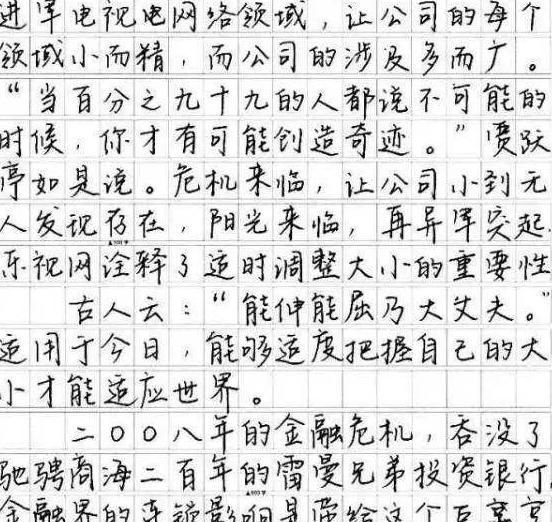 进军电视电网络领域，让公司的每个
领域小而精，而公司的涉及多而广。
“当百分之九十九的人都说不可能的
时候，你才有可能创造奇迹。”贾跃
亭如是说。危机来临，让公司小到无
人发现存在，阳光来临，再异军突起
乐视网诠释了适时调整大小的重要性
古人云：“能伸能屈乃大丈夫。”
适用于今日，能够适度把握自己的大
小才能适应世界。
二〇〇八年的金融危机，吞没了
驰骋商海二百年的雷曼兄弟投资银行，
金融界的连锁影响是带给这个